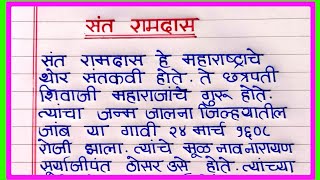 संत रामदास
संत रामदास हे महाराष्ट्राचे
थोर संतकवी होते. ते छत्रपती
शिवाजी महाराजांचे गुरू होते.
त्यांचा जन्म जालना जिल्ह्यातील
जांब या गावी २४ मार्च १६०८
रोजी झाला. त्यांचे मूळ नाव नारायण
सूर्याजीपंत ठोसर असे होते. त्यांच्या